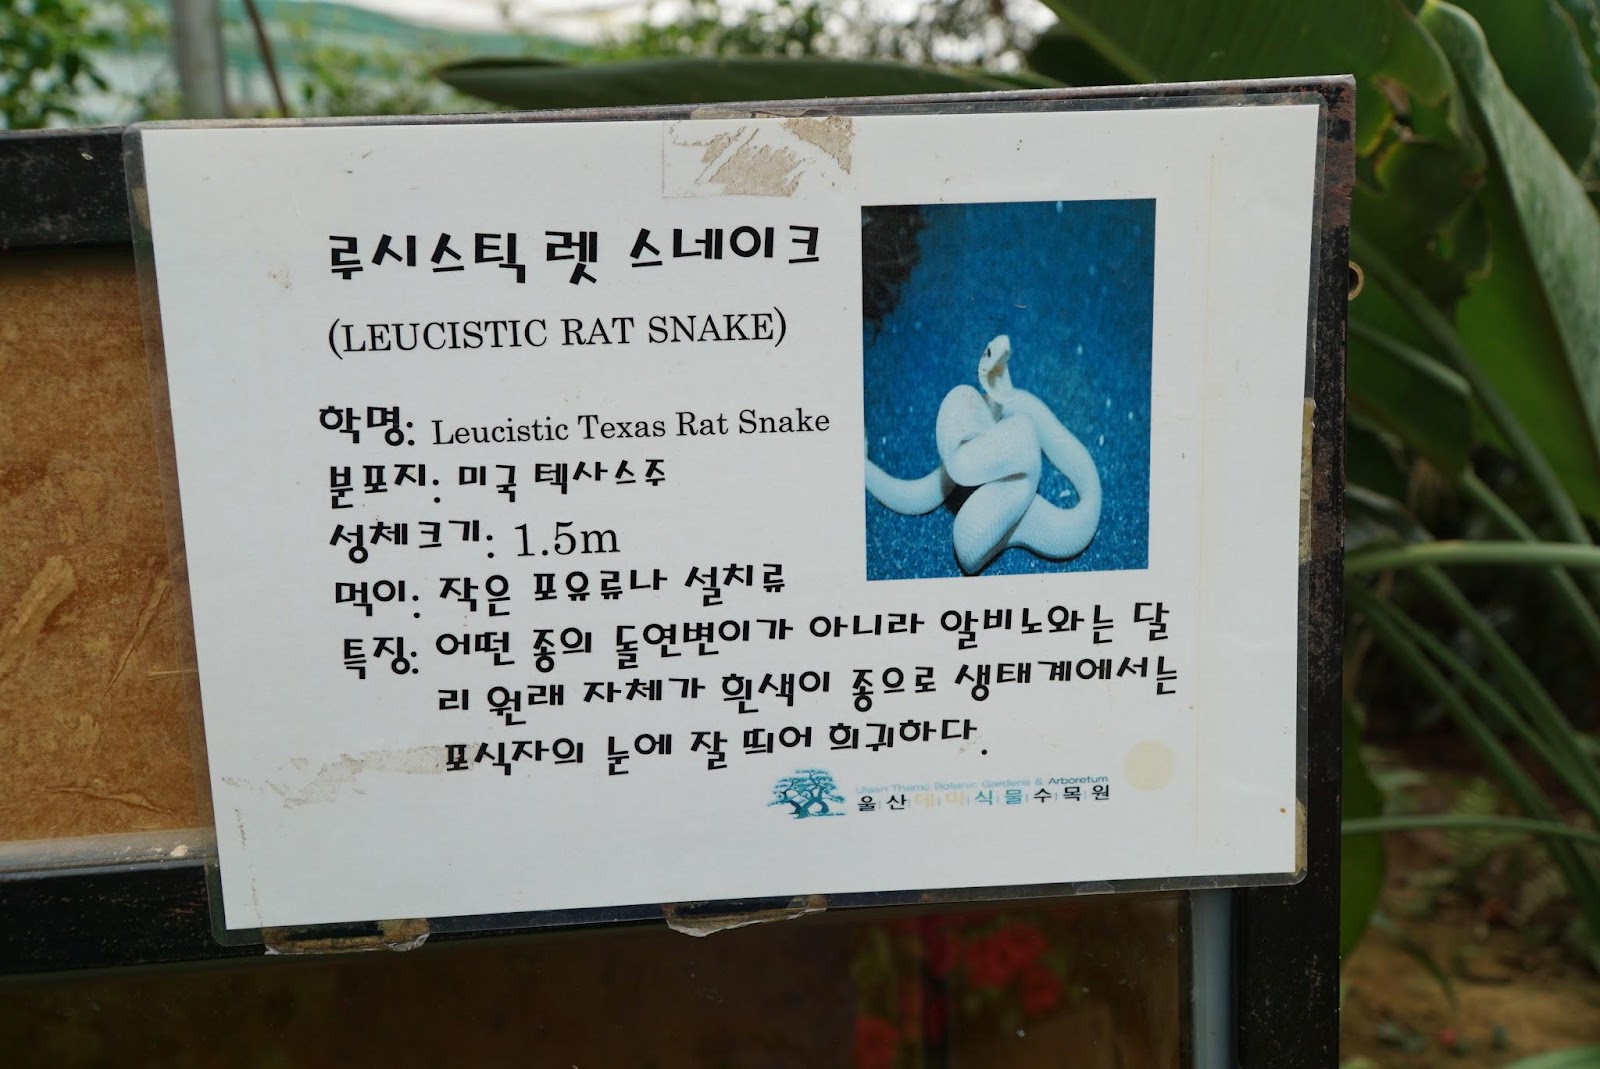 루시스틱 렛 스네이크
(LEUCISTIC RAT SNAKE)
학명: Leucistic Texas Rat Snake
분포지: 미국 텍사스주
성체크기: 1.5m
먹이: 작은 포유류나 설치류
특징: 어떤 종의 돌연변이가 아니라 알비노와는 달
리 원래 자체가 흰색이 종으로 생태계에서는
포식자의 눈에 잘 띄어 희귀하다.
Ulsan Theme Botanic Gardens & Arboretum
울산테마식물수목원